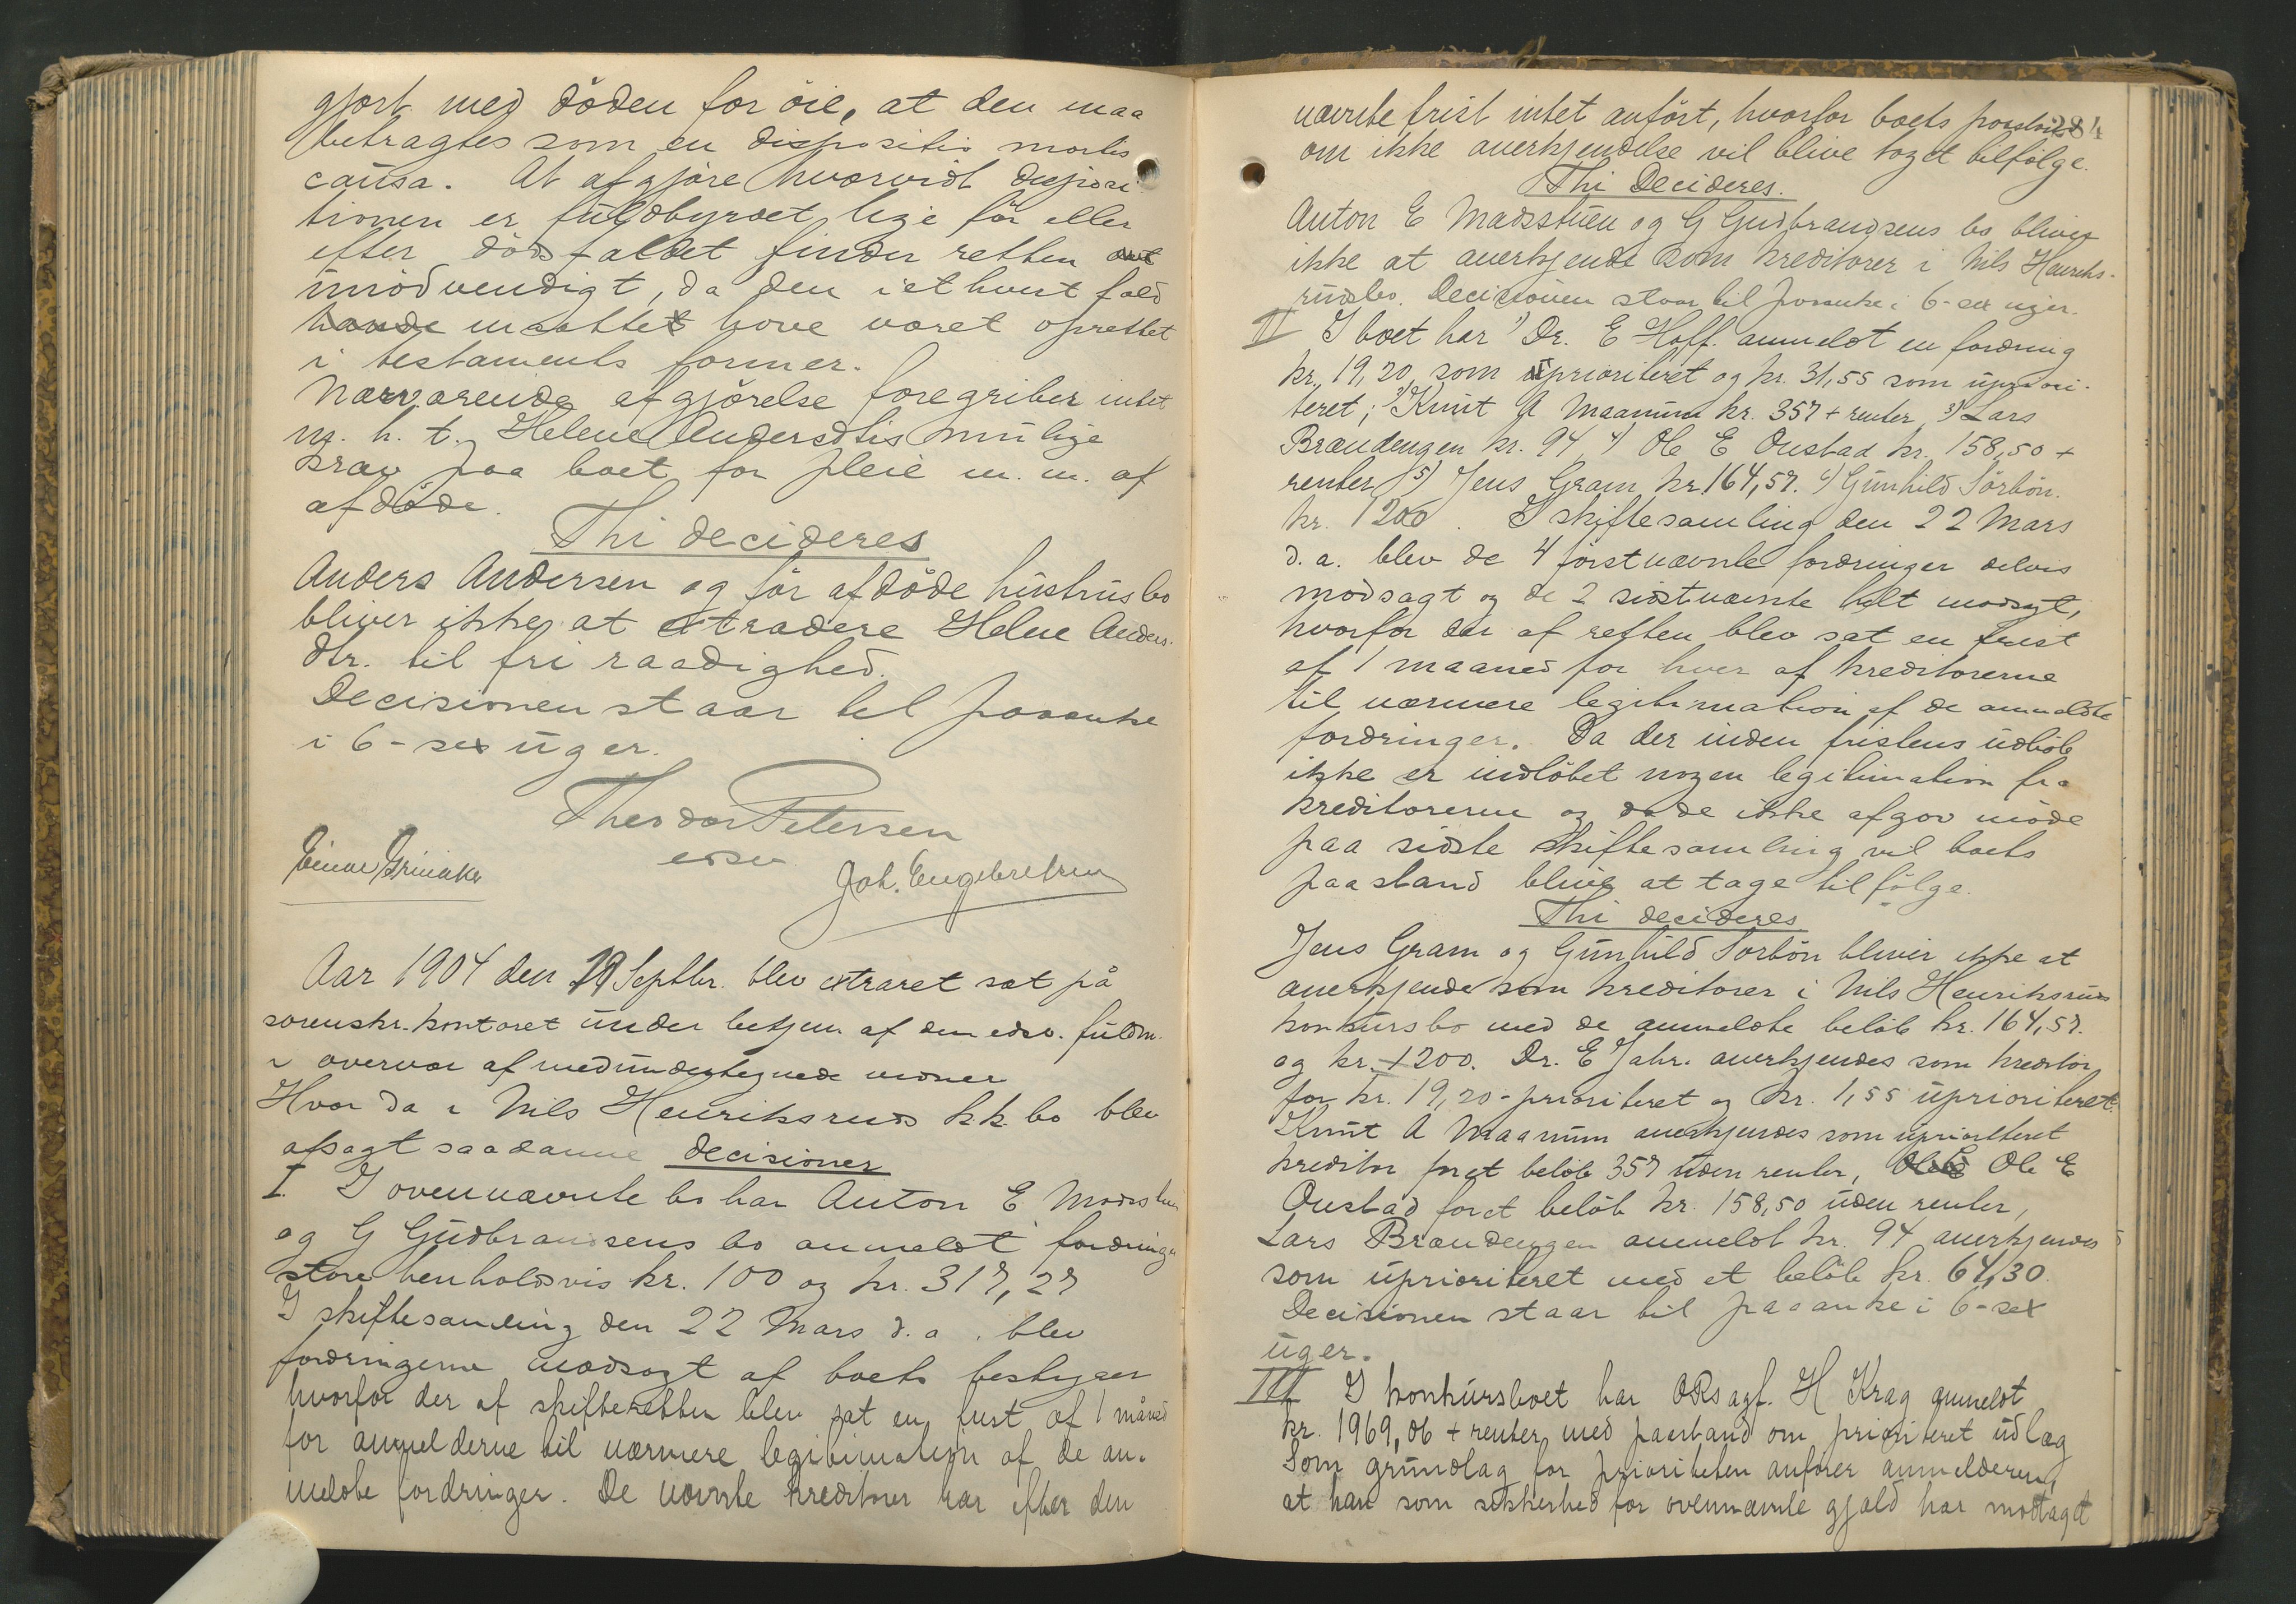 gjort med döden for öie, at den maa
betragtes som en dispositio mortis
causa. At afgjöre hvorvidt disposi
tionen er fuldbyrdet lige för eller
efter dödsfaldet finder retten
unödvendigt, da den i ethvert fald
havde maattet have været oprettet
i testaments former.
Nærværende afgjörelse foregriber intet
m. h. t. Helene Andersdtrs mulige
krav paa boet for pleie m. m. af
afdöde.
Thi decideres
Anders Andersen og för afdöde hustrus bo
bliver ikke at extradere Helene Anders.
dtr. til fri raadighed.
Decisionen staar til paaanke
i 6-sex uger.
Theodor Petersen
edsv
Einar Grinaker
Joh. Engebretsen
Aar 1904 den 29 Septbr. blev extraret sat på
sorenskr. kontoret under betjen af den edsv. fuldm.
i overvær af medundertegnede vidner
Hvor da i Nils Henriksruds kk. bo blev
afsagt saadanne decisioner
I. I ovennævnte bo har Anton E Madsstuen
og G Gudbrandsens bo anmeldt fordringer
store henholdsvis kr. 100 og kr. 317,27
I skiftesamling den 22 Mars d. a. blev
fordringerne modsagt af boets bestyrer
hvorfor der af skifteretten blev sat en frist af 1 måned
for anmelderne til nærmere legitimation af de an-
meldte fordringer. De nævnte kreditorer har efter den
nævnte frist intet anfört, hvorfor boets paastand 284
om ikke anerkjendelse vil blive taget tilfölge.
Thi Decideres.
Anton E Madsstuen og G Gudbrandsens bo bliver
ikke at anerkjende som kreditorer i Nils Henriks-
rudsbo. Decisionen staar til paaanke i 6-sex uger.
II I boet har 1) Dr. E Hoff. anmeldt en fordring
kr. 19,20 som prioriteret og kr. 31,55 som upriori-
teret; 2) Knut A Maanum kr. 357 + renter 3) Lars
Brændengen kr. 94 4) Ole E Onstad kr. 158,50 +
renter 5) Jens Gram kr 164,57. 6) Gunhild Sörbön.
kr. 1200. I skiftesamling den 22 Mars
d. a. blev de 4 förstnævnte fordringer delvis
modsagt og de 2 sidstnævnte helt modsagt,
hvorfor der af retten blev sat en frist
af 1 maaned for hver af kreditorerne
til nærmere legitimation af de anmeldte
fordringer. Da der inden fristens udlöb
ikke er indlöbet nogen legitimation fra
kreditorerne og da de ikke afgav möde
paa sidste skiftesamling vil boets
paastand blive at tage tilfölge.
Thi decideres
Jens Gram og Gunhild Sorbön bliver ikke at
anerkjende som kreditorer i Nils Henriksruds
konkursbo med de anmeldte belöb kr. 164,57.
og kr. 1200. Dr. E Jahr. anerkjendes som kreditor
for kr. 19,20 - prioriteret og kr. 1,55 uprioriteret.
Knut A Maanum anerkjendes som uprioriteret
kreditor for et belöb 357 uden renter, Ole E
Onstad for et belöb kr. 158,50 uden renter,
Lars Brændengen anmeldt kr. 94 anerkjendes
som uprioriteret med et belöb kr. 64,30.
Decisionen staar til paaanke i 6-sex
uger.
III I konkursboet har ORsagf. H Krag anmeldt
kr. 1969,06 + renter med paastand om prioriteret udlæg
Som grundlag for prioriteten anförer anmelderen,
at han som sikkerhed for ovennævnte gjæld har modtaget